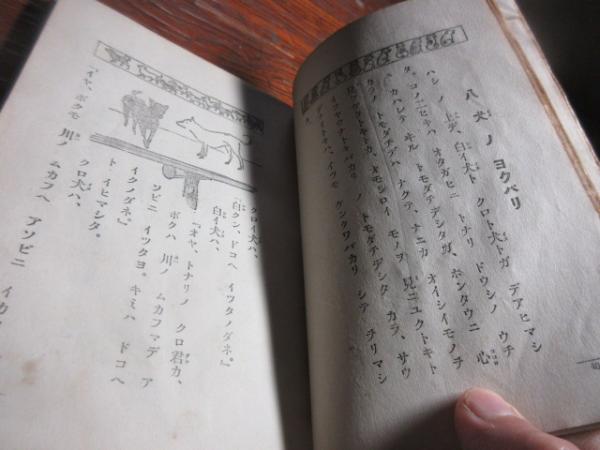 八 犬 ノ ヨクバリ
ハシ ノ 上デ、白イ犬ト クロト犬トガ デアヒマシ
タ。コノ二ヒキハ オタガヒニ トナリ ドウシノ ウチ
カハレテ ヰル トモダチデシタガ、ホンタウニ 心
トモダチデハ ナクテ、ナニカ オイシイモノチ
トキトカ、オモシロイ モノヲ 見ニユクトキト
ノ トモダチデシタ カラ、サウ
イツモ ケンクワバカリ シテ ヲリマシ
タ。
クロイ犬ハ、
「白クン、ドコヘ イツタノダネ。」
白イ犬ハ、
「オヤ、トナリノ クロ君カ、
ボクハ 川ノ ムカフマデ ア
ソビニ イツタヨ。キミハ ドコヘ
イクノダネ。」
ト イヒマシタ。
クロ犬ハ、
「イヤ、ボクモ 川ノ ムカフヘ アソビニ イカ